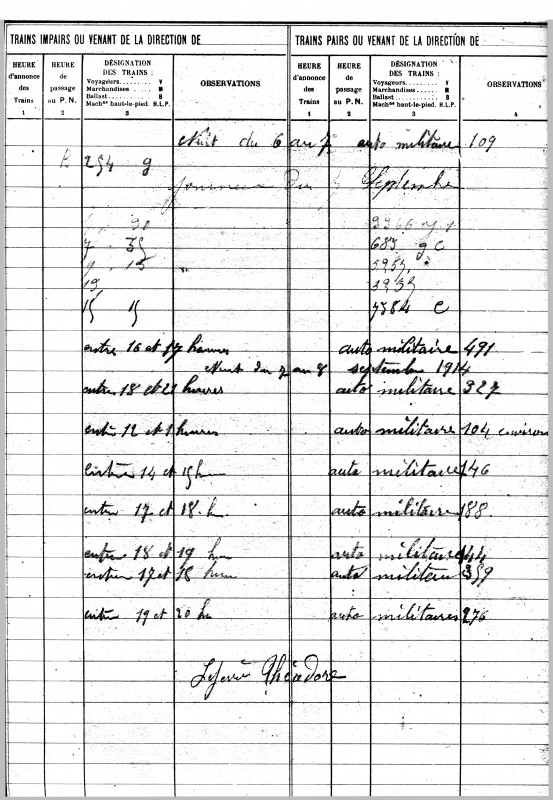 TRAINS IMPAIRS OU VENANT DE LA DIRECTION DE TRAINS PAIRS OU VENANT DE LA DIRECTION DE
HEURE d'annonce des Trains 1
HEURE de passage au P.N. 2
DÉSIGNATION DES TRAINS : Voyageurs V Marchandises M Ballast B Machnes haut-le-pied. H.L.P. 3
OBSERVATIONS
HEURE d'annonce des Trains 1
HEURE de passage au P.N. 2
DÉSIGNATION DES TRAINS : Voyageurs V Marchandises M Ballast B Machnes haut-le-pied. H.L.P. 3
OBSERVATIONS 4
Nuit du 6 au 7 auto militaire 109
254 g
Septembre
30
7 35 685 g c
9 15
19
15 15 7384 C
entre 16 et 17 heures auto militaire 491
Nuit du 7 au 8 septembre 1914
entre 18 et 21 heures auto militaire 327
entre 12 et 1 heures auto militaire 104 environ
Entre 14 et 15 h auto militaire 146
entre 17 et 18 h auto militaire 188
entre 18 et 19 h auto militaire 144
entre 17 et 18 h auto militaire 359
entre 19 et 20 h auto militaires 276
Théodore